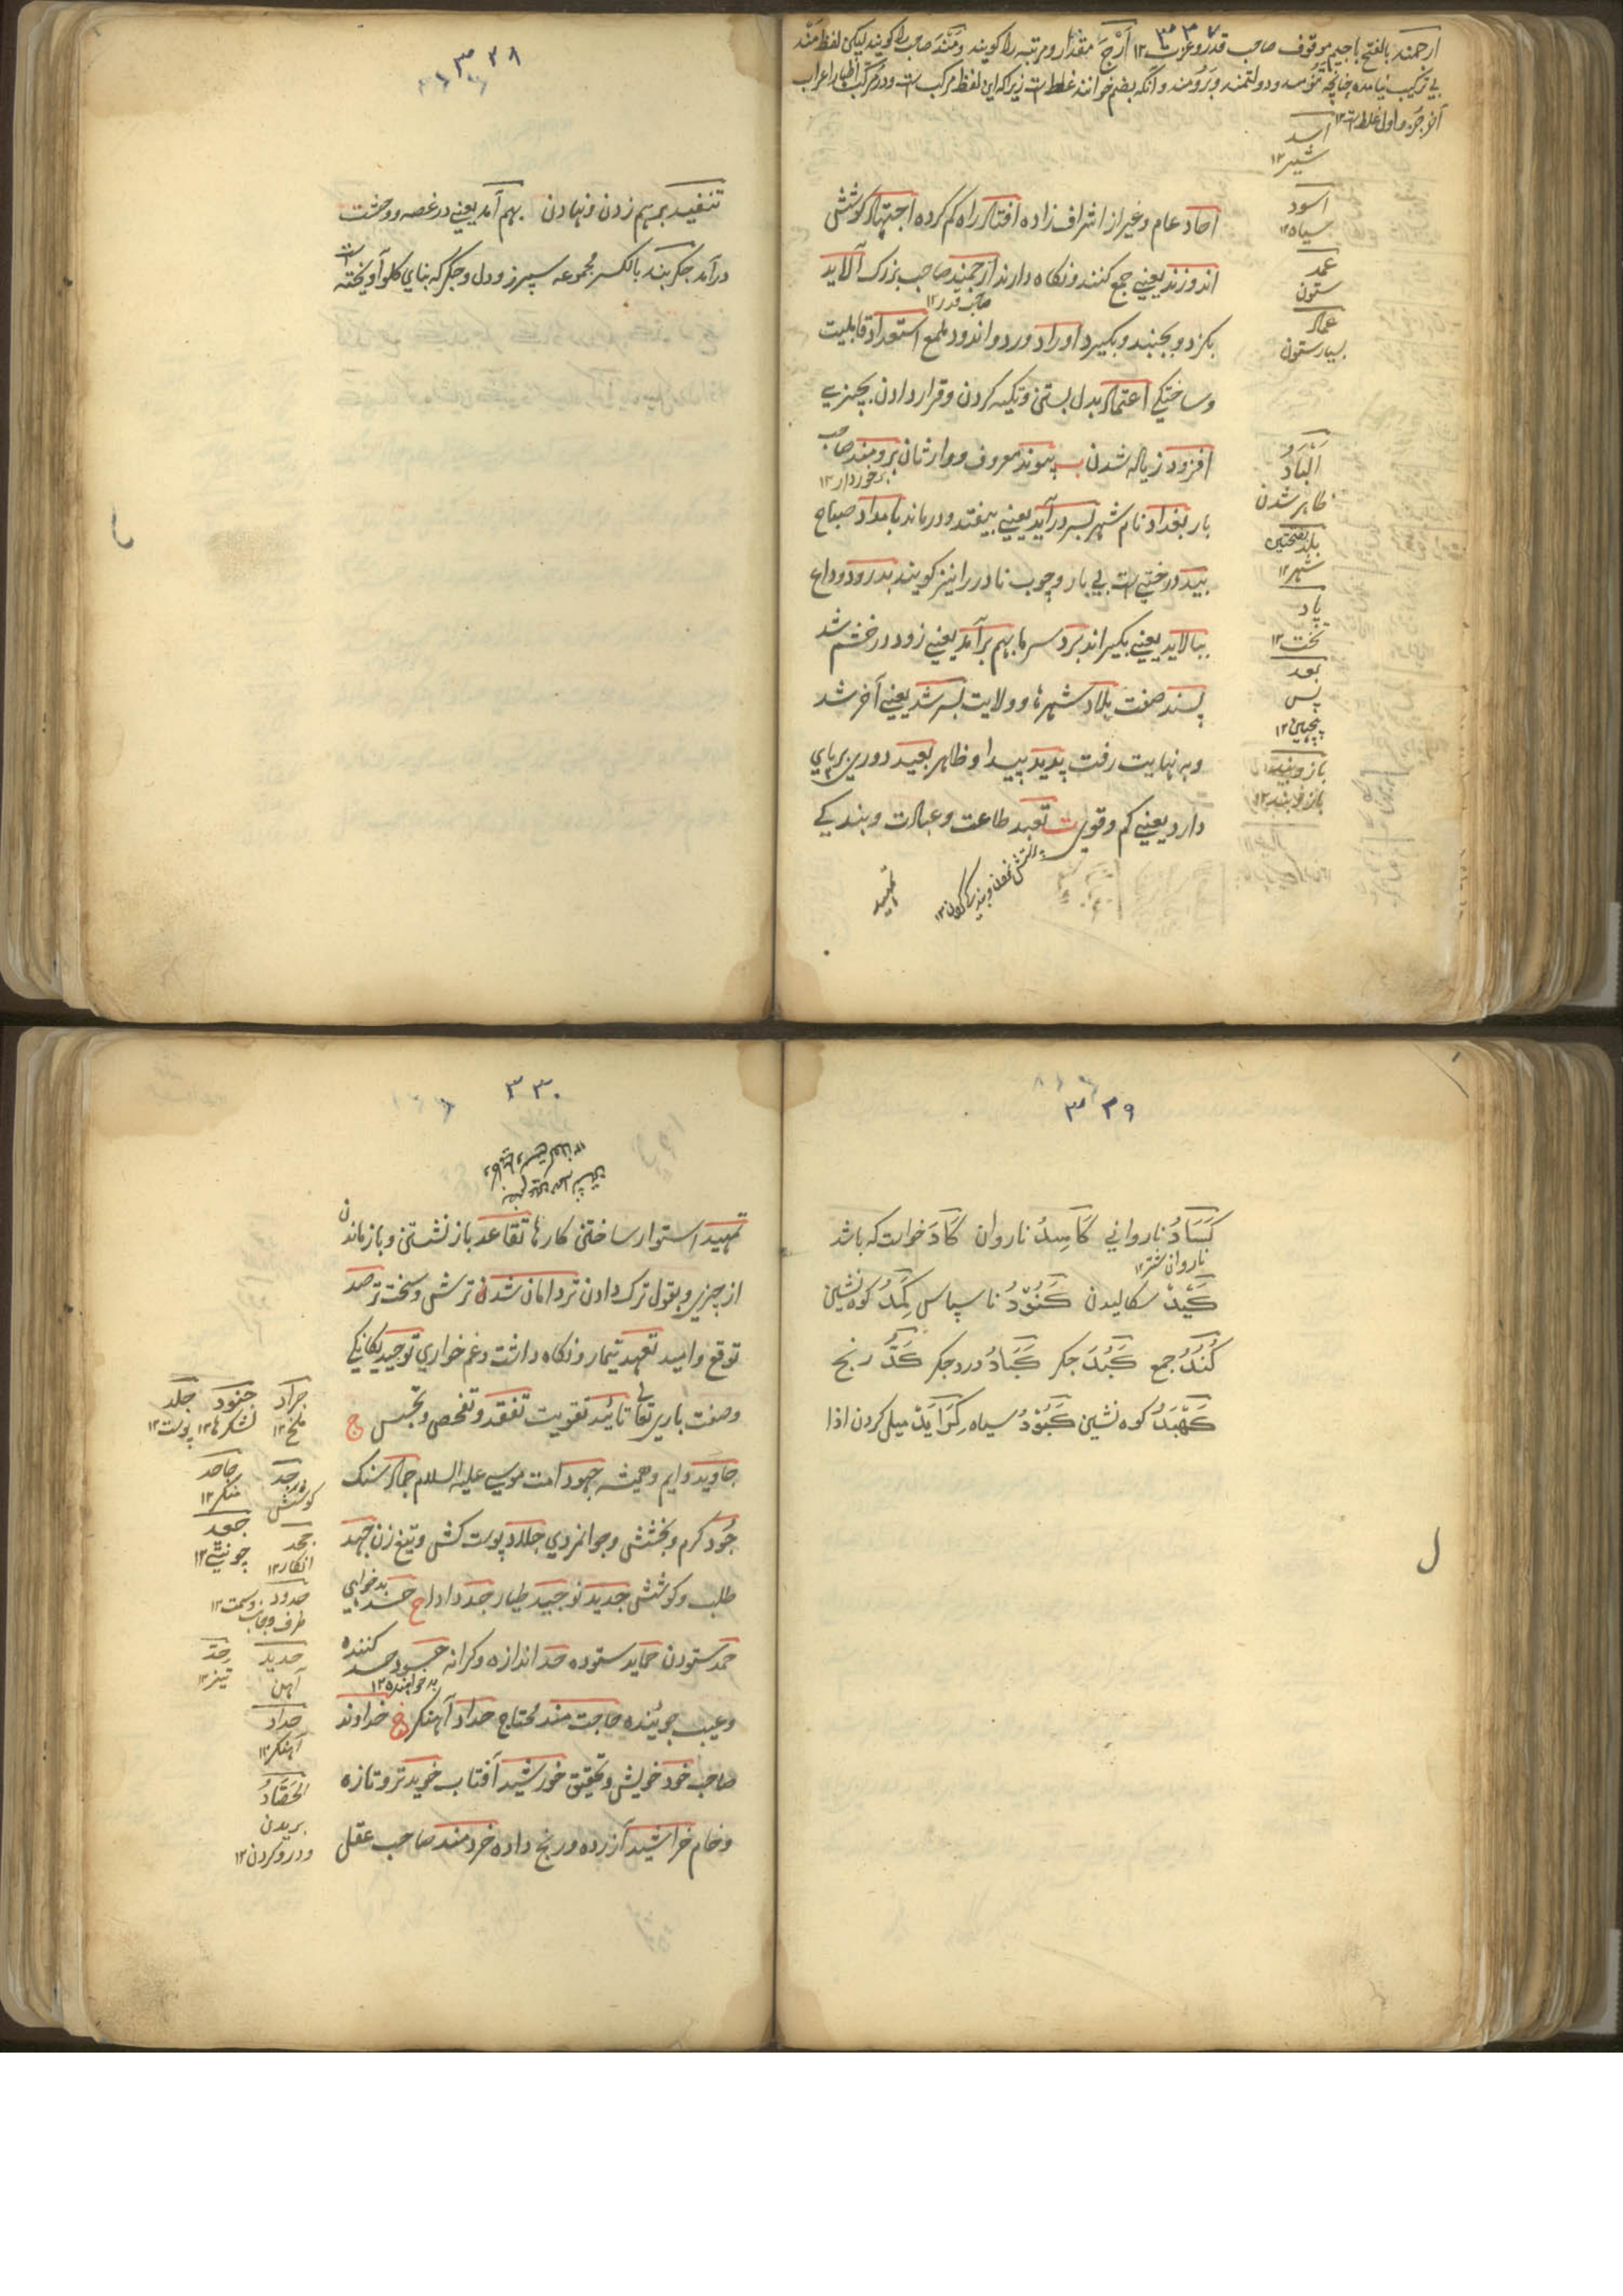 ۳۳۷
ارجمند بالفتح باجیم موقوف صاحب قدر و عزت ۱۲ اَرْجَ مقدار و مرتبه را کویند و مَنْدَ صاحب را کویند لیکن لفظ مَنْد
بی ترکیب نیامده چنانچه تنومند و دولتمند و بَرومند و آنکه بضم خوانند غلط است زیرا که این لفظ مرکب است و در مرکب اظهار اعراب
آخر جزء اول غلط است ۱۲
احاد عام و غیر از اشراف زاده افتاد راه کم کرده اجتهاد کوشش
اندوزند یعنی جمع کنند و نکاه دارند ارجمند صاحب بزرک آلاید
صاحب قدر ۱۲
بکزد و بجنبد و بکیرد اوراد ورد و اندود ملمع استعداد قابلیت
و ساختیکی اعتماد بدل بستن و تکیه کردن و قرار دادن بچیزیے
افزود زیاده شدن ب پیوند معروف و وارثان برومند صاحب
برخوردار ۱۲
بار بغداد نام شهر بسر درآید یعنی بیفتد و درماند بامداد صباح
بید درختی است بی بار و چوب نادر را نیز کویند بدرود وداع
ببالاید یعنی بکیراند برد سرما بهم برآمد یعنی زود در خشم شد
پسند صفت بلاد شهرها و ولایت بسر شد یعنی آخر شد
و به نهایت رفت پدید پیدا و ظاهر بعید دور بر پای
دارد یعنی کم و قوی ت تعبد طاعت و عبادت و بندیکے
تمهید
اسد
شیر ۱۲
اسود
سیاه ۱۲
عمد
ستون
عماد
بسیار ستون
اَلْبَادُ
ظاهر شدن
بلد بفتحتین
شهر ۱۲
پاد
تخت ۱۲
بعد
پس
۳۳۸
تنفید برهم زدن و نهادن بهم آمد یعنی در غصه و وحشت
درآمد جکر بند بالکسر مجموعه سپرز و دل و جکر که بنای کلو آویخته است
۳۳۹
کَسَادُ ناروانی کَاسِدُ ناروان کَادَ خواست که باشد
ناروان شتر ۱۲
کَیْدْ سکالیدن کَنُوْدُ ناسپاس کَمَدُ کوه نشین
کُنْدُ جمع کَبُدَ جکر کَبَادُ درد جکر کَدُّ رنج
کَهْبَدُ کوه نشین کَبُوْدُ سیاه کِرَایَدْ میل کردن اذا
۳۳۰
تمهید استوار ساختن کارها تقاعد باز نشستن و باز ماندن
از چیزی و بقول ترک دادن تردامان شدن ترش و سخت ترصد
توقع و امید تعهد تیمار و نکاه داشت و غم خواری توحید یکانکی
وصفت باریتعالی تائید تقویت تفقد و تفحص و تجسس ج
جاوید دایم و همیشه جهود امت موسی علیه السلام جماد سنک
جُود کرم و بخشش و جوانمردی جلاد پوست کش و تیغ زن جهد
طلب و کوشش جدید نو جید طیار جد دادا ح حسد بدخواهی
حمد ستودن حمید ستوده حد اندازه و کرانه حسود حسد کننده
بدخواهنده ۱۲
و عیب جوینده حاجت مند محتاج حداد آهنکر خ خداوند
صاحب خود خویش و تحقیق خورشید آفتاب خوید تر و تازه
و خام خراشید آزرده و رنج داده خردمند صاحب عقل
جراد جنود جلد
ملخ ۱۲ لشکرها ۱۲ پوست ۱۲
جد جاحد
کوشش منکر ۱۲
جحد جعد
انکار ۱۲
حدود
طرف و جانب و سمت ۱۲
حدید حَدّ
آهن تیز ۱۲
حداد
آهنکر ۱۲
الحَصَادُ
بریدن
و درو کردن ۱۲